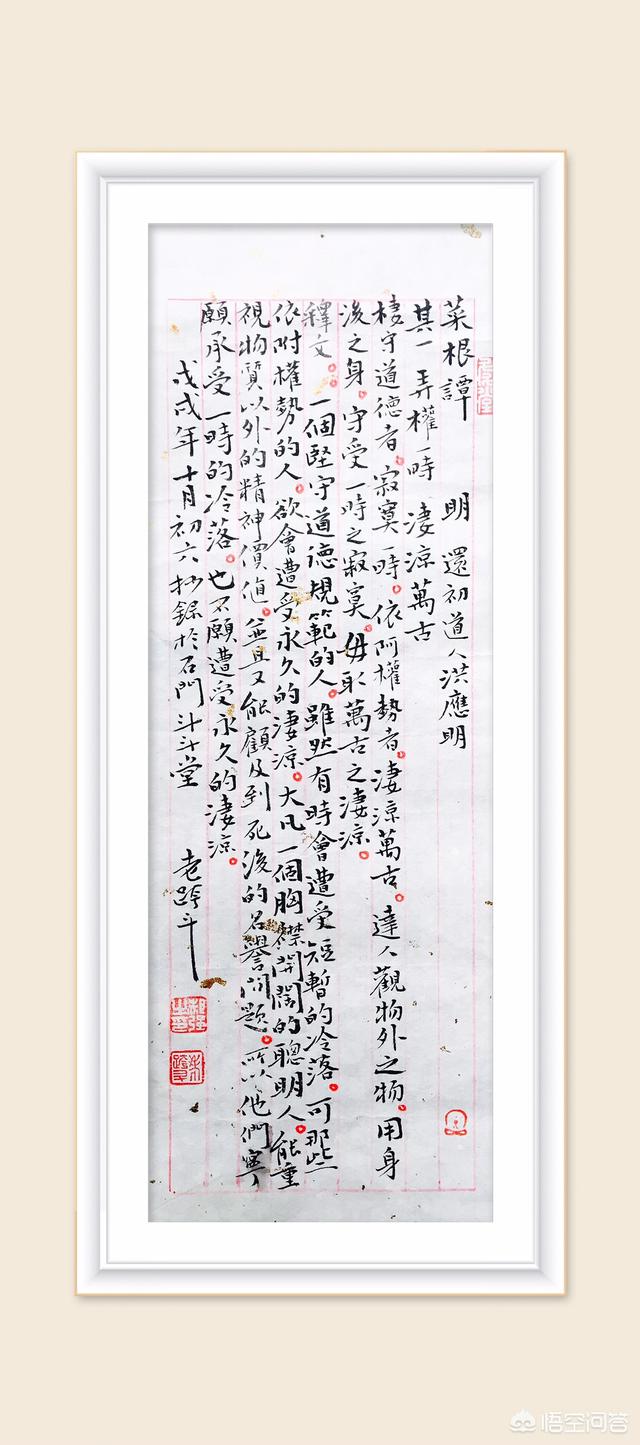 菜根譚 明 還初道人洪應明
其一 弄權一時 淒涼萬古
棲守道德者。寂寞一時。依阿權勢者。淒涼萬古。達人觀物外之物。用身
後之身。守受一時之寂寞。毋取萬古之淒涼。
釋文。一個堅守道德規範的人。雖然有時會遭受短暫的冷落。可那些
依附權勢的人。欲會遭受永久的淒涼。大凡一個胸襟開闊的聰明人。能重
視物質以外的精神價值。並且又能顧及到死後的名譽問題。所以他們寧
願承受一時的冷落。也不願遭受永久的淒涼。
戊戌年十月初六抄錄於石門斗斗堂 老跨斗
悟空问答